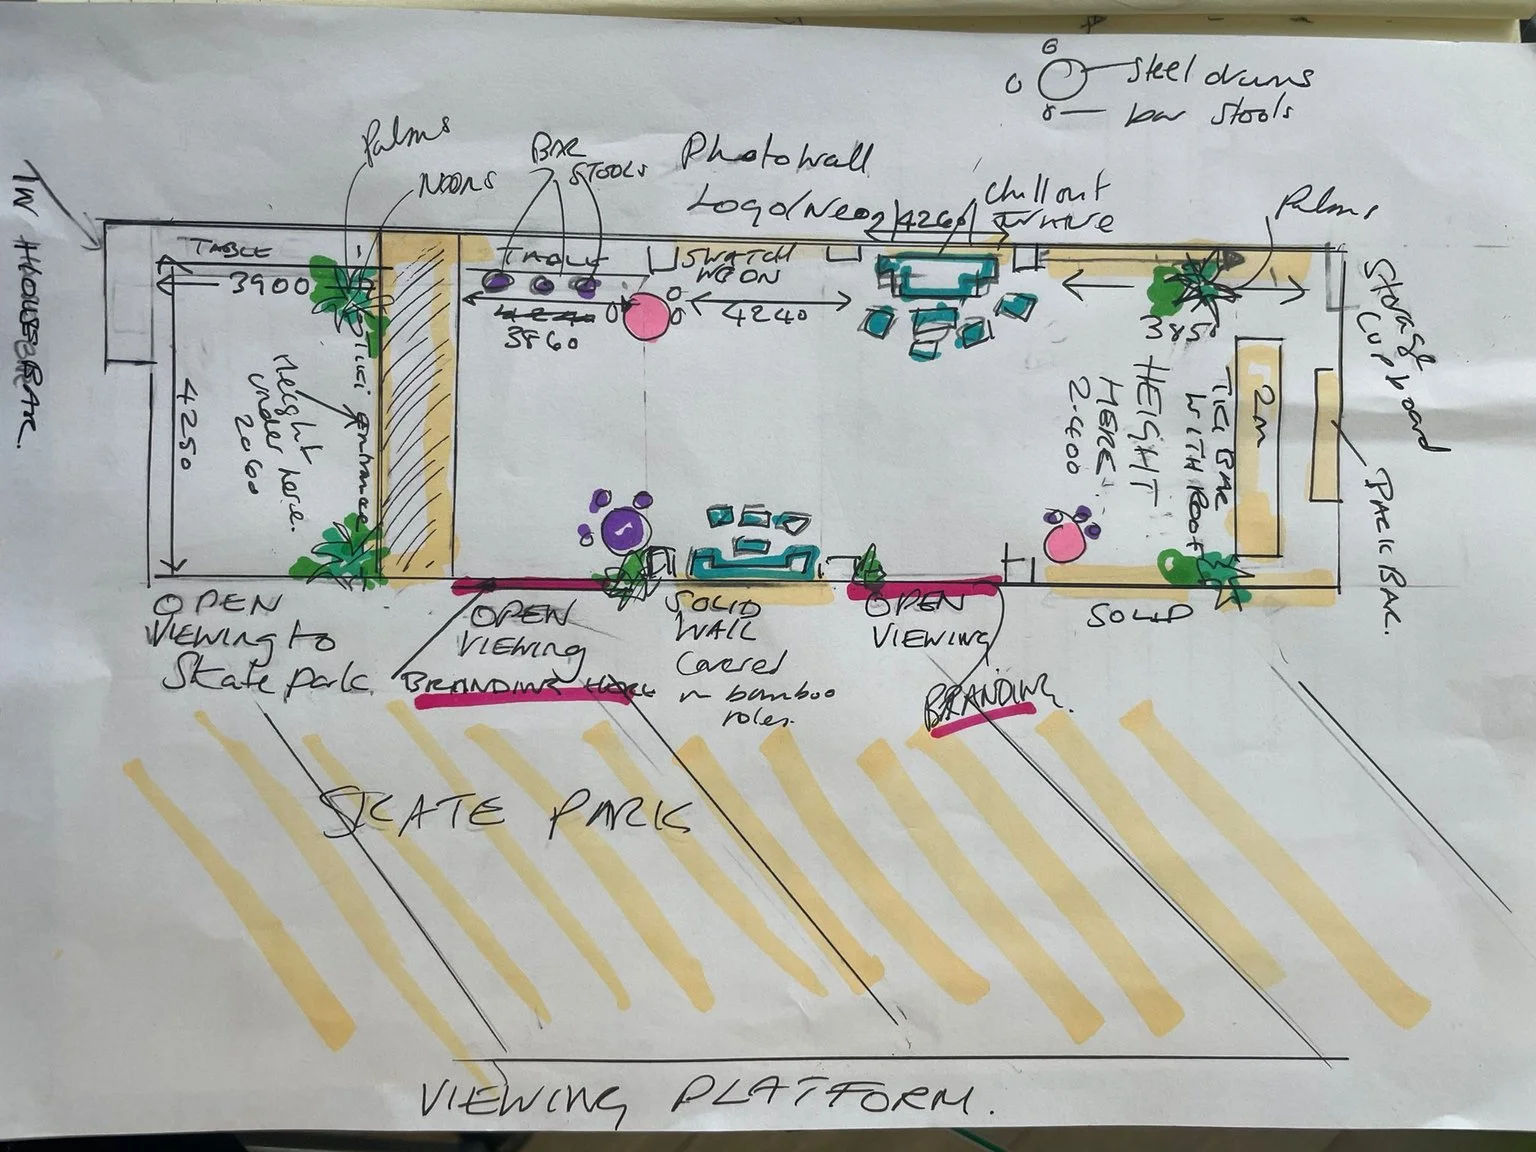 steel drums
bar stools
Palms
NEONS
BAR
STOOLS
Photowall
Logo/Neon
4260
Chillout
Palms
TABLE
3900
TABLE
4240
3860
SWATCH
4240
3850
Storage
Cupboard
4250
Height
under here.
2060
Tiki entrance
HEIGHT
HERE
2.400
TIKI BAR
WITH ROOF
2m
BACK BAR.
OPEN
VIEWING to
Skate park.
OPEN
VIEWING
BRANDING HERE
SOLID
WALL
Covered
in bamboo
roles.
OPEN
VIEWING
BRANDING.
SOLID
SKATE PARK
VIEWING PLATFORM.